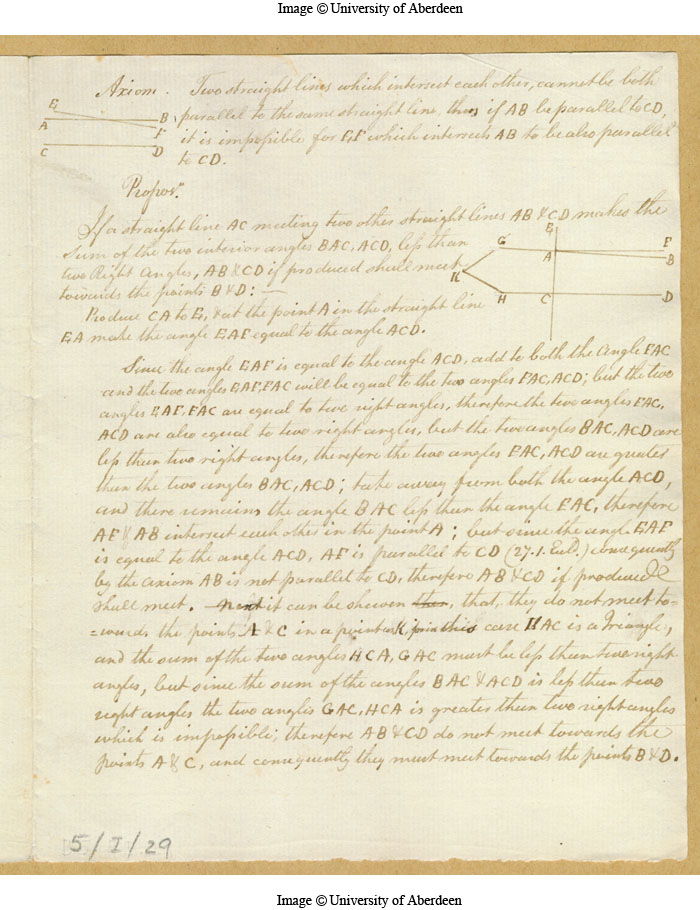 Image © University of Aberdeen
Axiom. Two straight lines which intersect each other, cannot be both
parallel to the same straight line, thus if AB be parallel to CD,
it is impossible for EF which intersects AB to be also parallel
to CD.
E
A
B
F
C
D
Propos.n
If a straight line AC meeting two other straight lines AB & CD makes the
Sum of the two interior angles BAC, ACD, less than
two Right Angles, AB & CD if produced shall meet
towards the points B & D: —
E
G
F
A
B
K
H
C
D
Produce CA to E, & at the point A in the straight line
EA make the angle EAF equal to the angle ACD.
Since the angle EAF is equal to the angle ACD, add to both the Angle FAC
and the two angles EAF, FAC will be equal to the two angles FAC, ACD; but the two
angles EAF, FAC are equal to two right angles, therefore the two angles FAC,
ACD are also equal to two right angles, but the two angles BAC, ACD are
less than two right angles, therefore the two angles FAC, ACD are greater
than the two angles BAC, ACD; take away from both the angle ACD,
and there remains the angle BAC less than the angle FAC, therefore
AF & AB intersect each other in the point A; but since the angl. EAF
is equal to the angle ACD, AF is parallel to CD (27.1. Eucl.) consequently
by the axiom AB is not parallel to CD, therefore AB & CD if produced
shall meet. Next it can be shewen than, that, they do not meet to-
=wards the points A & C in a point K for in this case KAC is a Triangle,
and the sum of the two angles HCA, GAC must be less than two right
angles, but since the sum of the angles BAC & ACD is less than two
right angles the two angles GAC, HCA is greater than two right angles
which is impossible; therefore AB & CD do not meet towards the
points A & C, and consequently they must meet towards the points B & D.
5/I/29
Image © University of Aberdeen